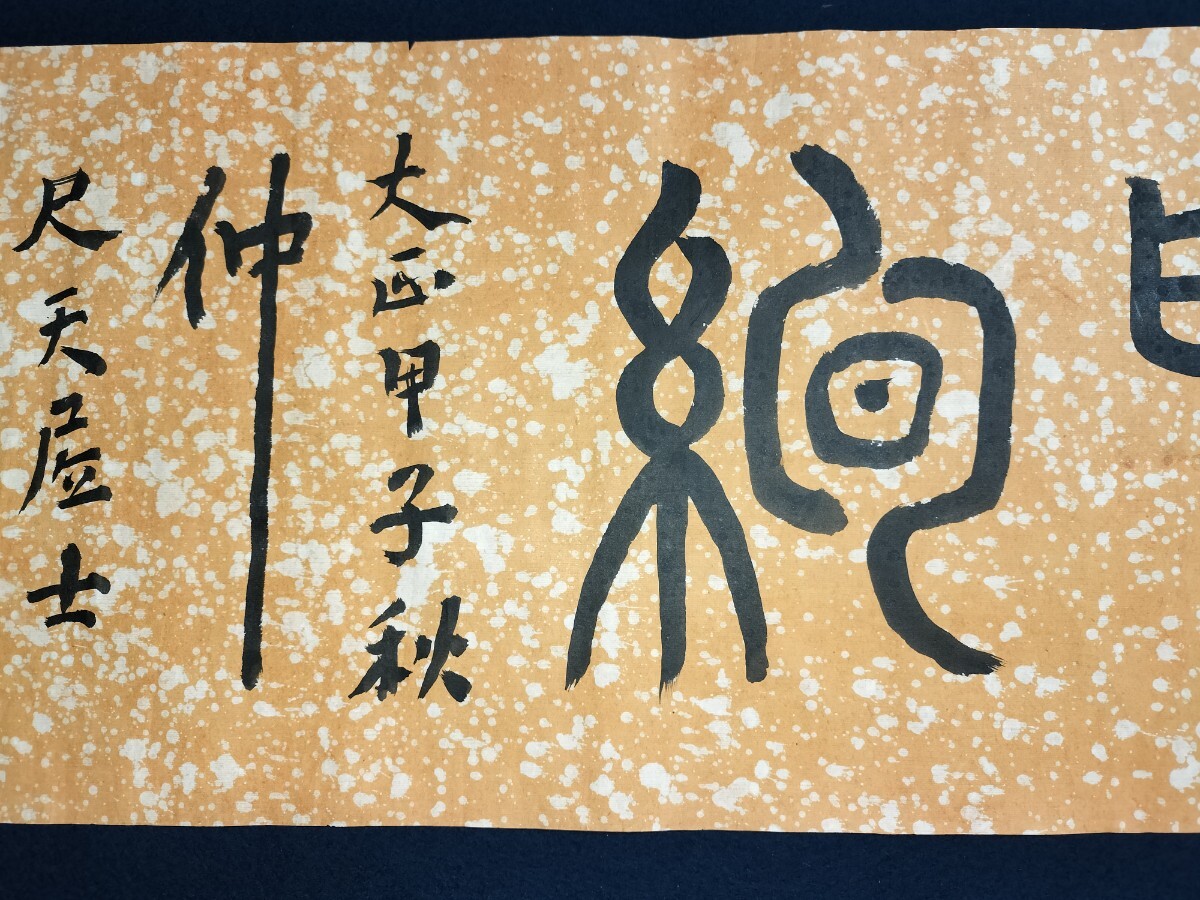 絢
大正甲子秋
仲
尺天虛士